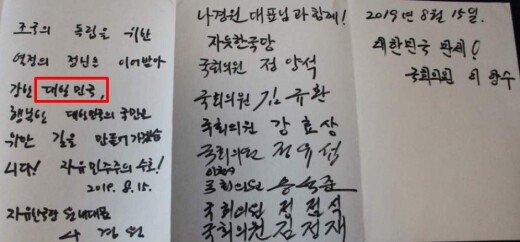 조국의 독립을 위한
정신을 이어받아
강한 대일민국,
행복한 대한민국의 국민을
위한 길을 만들어가겠습
니다! 자유민주주의 수호!
2019. 8. 15.
자유한국당 원내대표
나경원
나경원 대표님과 함께!
자유한국당
국회의원 정양석
국회의원 김규환
국회의원 강효상
국회의원 정유섭
국회의원 송석준
국회의원 정점식
국회의원 김정재
2019년 8월 15일.
대한민국 만세!
국회의원 이양수